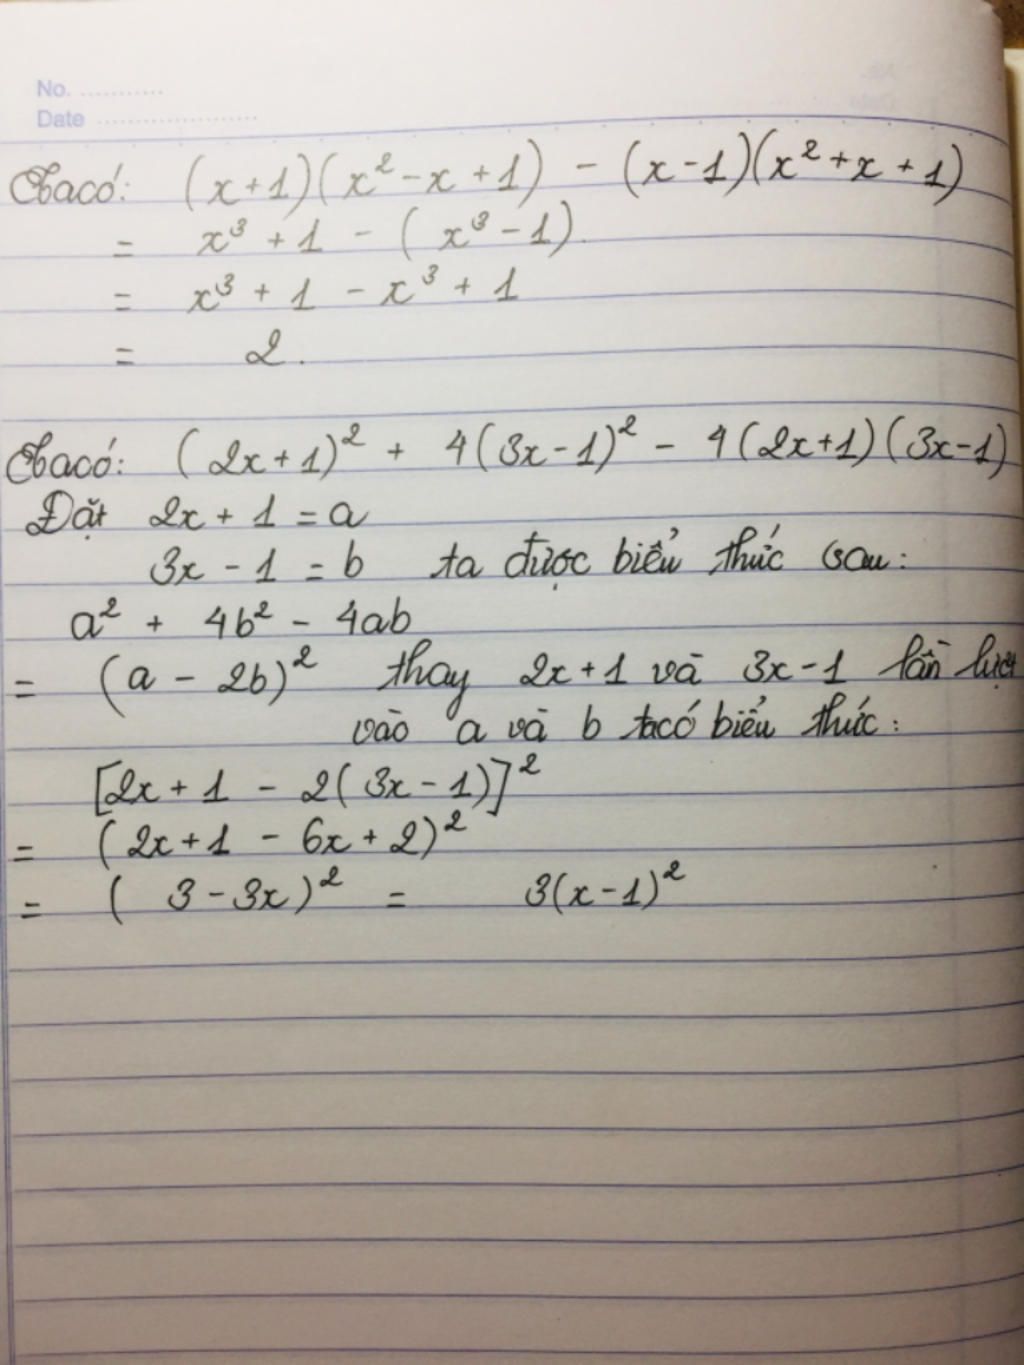 No. ...........
Date ......................
Ta có: (x+1)(x² - x + 1) - (x-1)(x² + x + 1)
= x³ + 1 - (x³ - 1).
= x³ + 1 - x³ + 1
= 2.
Ta có: (2x+1)² + 4(3x-1)² - 4(2x+1)(3x-1)
Đặt 2x + 1 = a
3x - 1 = b ta được biểu thức sau:
a² + 4b² - 4ab
= (a - 2b)² thay 2x+1 và 3x-1 lần lượt
vào a và b ta có biểu thức:
[2x + 1 - 2(3x - 1)]²
= (2x+1 - 6x + 2)²
= (3 - 3x)² = 3(x-1)²